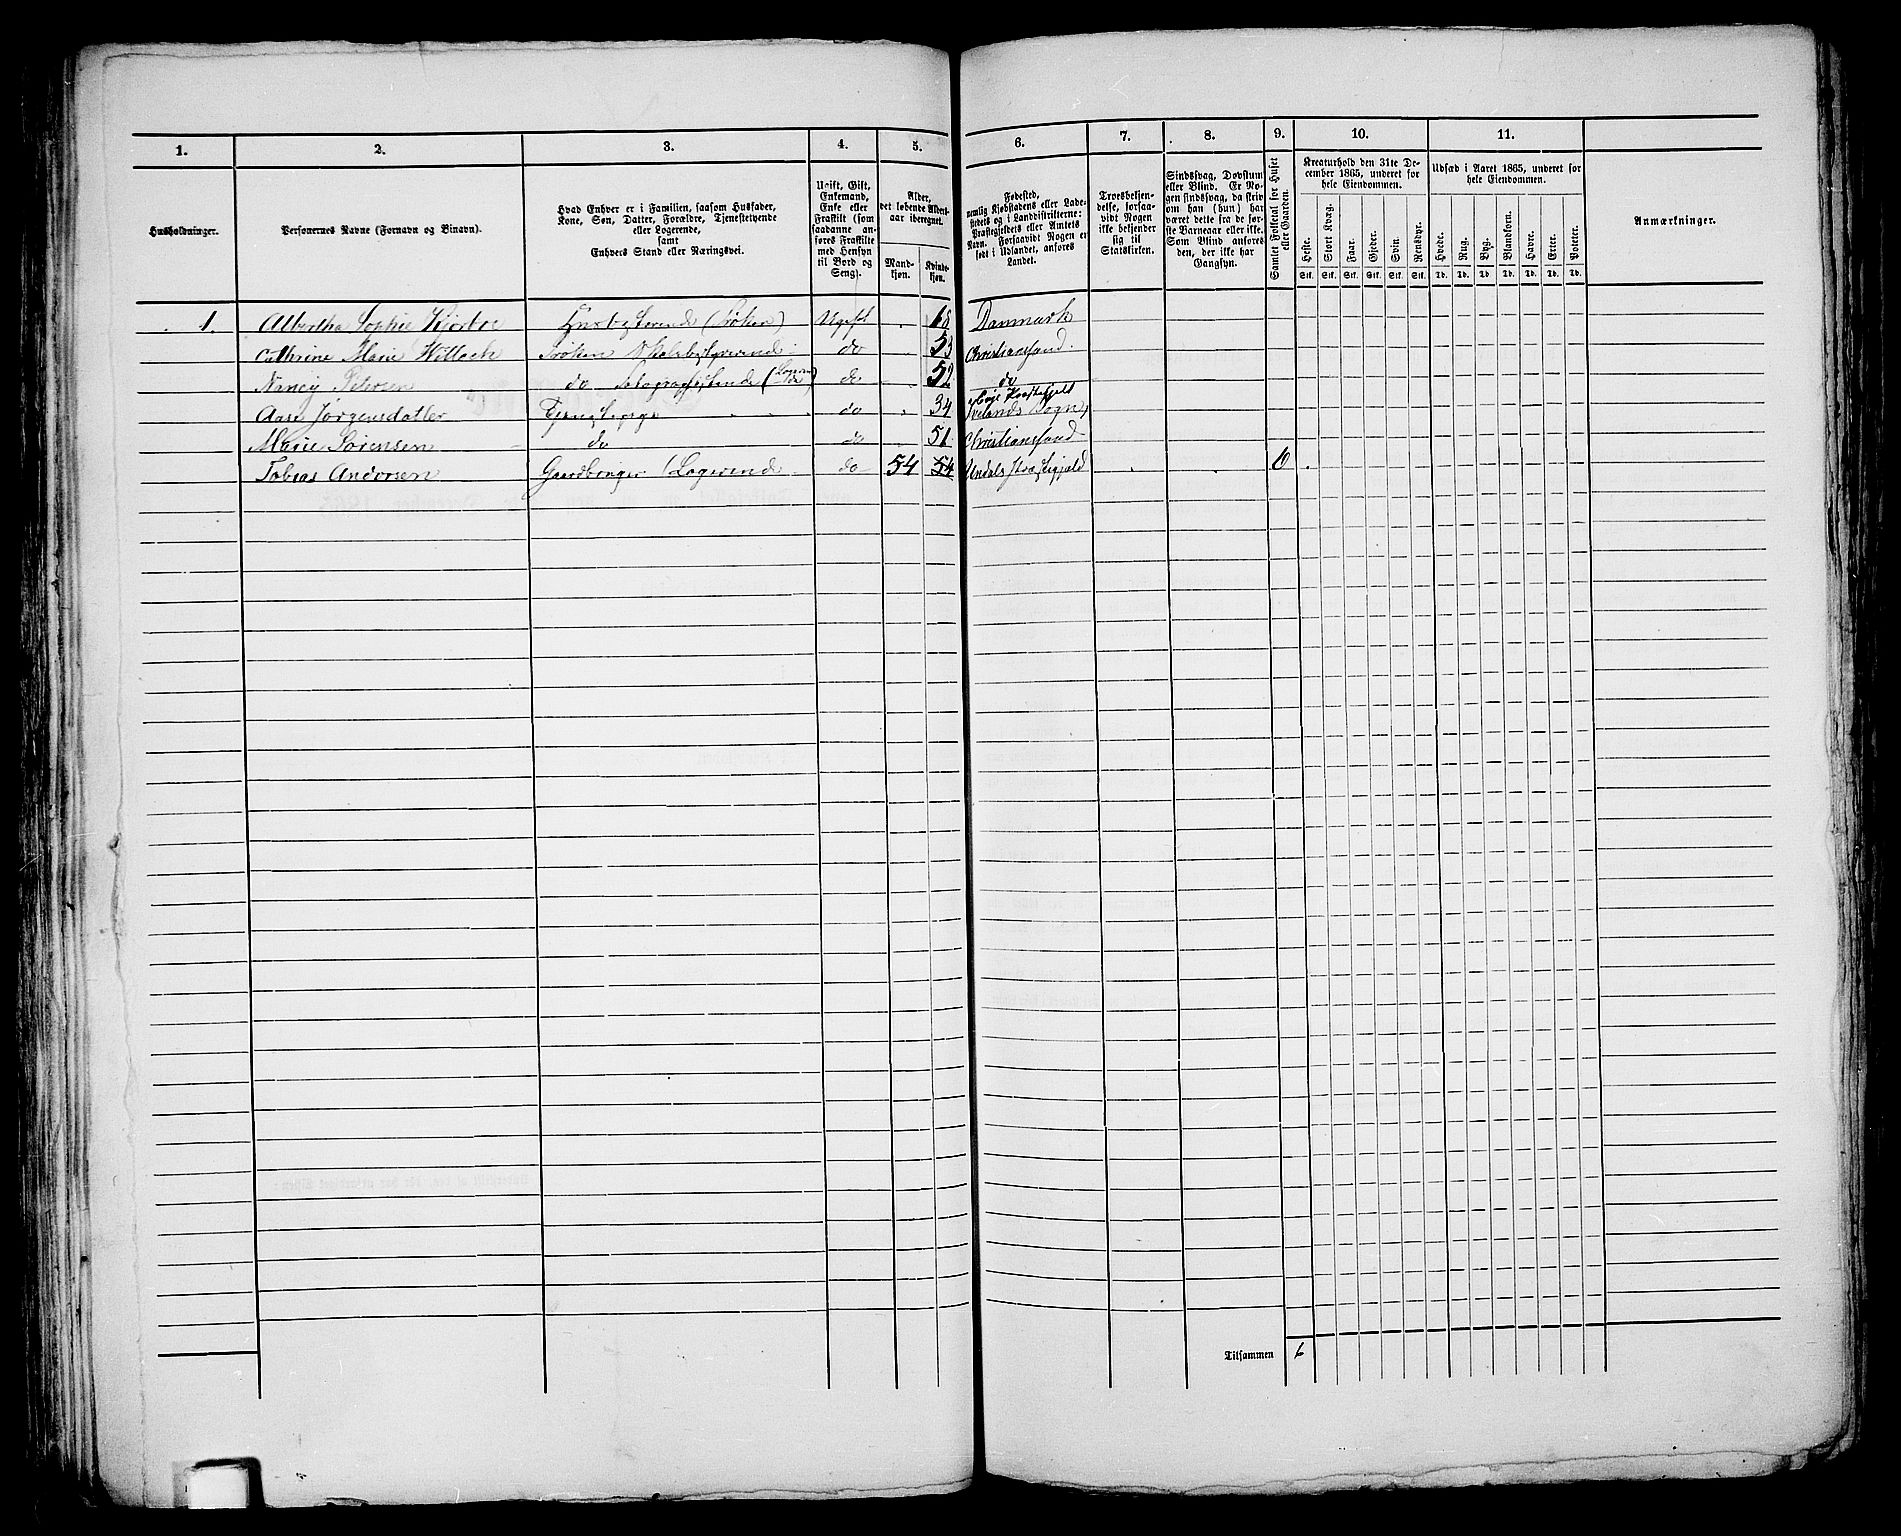 1. 2. 3. 4. 5. 6. 7. 8. 9. 10. 11.
Husholdninger.
Personernes Navne (Fornavn og Binavn).
Hvad Enhver er i Familien, saasom Husfader,
Kone, Søn, Datter, Forældre, Tjenestetyende
eller Logerende,
samt
Enhvers Stand eller Næringsvei.
Ugift, Gift,
Enkemand,
Enke eller
Fraskilt (som
saadanne an-
føres Fraskilte
med Hensyn
til Bord og
Seng).
Alder,
det løbende Alders-
aar iberegnet.
Mand-
kjøn.
Kvinde-
kjøn.
Fødested,
nemlig Kjøbstadens eller Lade-
stedets og i Landdistrikterne:
Præstegjeldets eller Amtets
Navn. Forsaavidt Nogen er
født i Udlandet, anføres
Landet.
Troesbekjen-
delse, forsaa-
vidt Nogen
ikke bekjender
sig til
Statskirken.
Sindssvag, Døvstum
eller Blind. Er No-
gen sindssvag, da skriv
om han (hun) har
været dette fra de før-
ste Barneaar eller ikke.
Som Blind anføres
den, der ikke har
Gangsyn.
Samlet Folketal for Huset
eller Gaarden.
Kreaturhold den 31te De-
cember 1865, underet for
hele Eiendommen.
Heste. Stort Kvæg. Faar. Gjeder. Svin. Rensdyr.
Stk. Stk. Stk. Stk. Stk. Stk.
Udsæd i Aaret 1865, underet for
hele Eiendommen.
Hvede. Rug. Byg. Blandkorn. Havre. Erter. Poteter.
Td. Td. Td. Td. Td. Td. Td.
Anmærkninger.
1. Albertha Sophie Kjørboe Husbestyrende (Frøken) Ugift 68 Danmark
Cathrine Marie Frøken Skolebestyrende do 53 Christianssand.
Nancy Petersen do (Logerende) do 52 do
Aase Jørgensdatter do 34 Ivelands Sogn,
Marie Sørensen do do 51 Christianssand
Tobias Andersen Gaardbruger (Logerende do 54 54 Undals Præstegjæld 6
Tilsammen 6